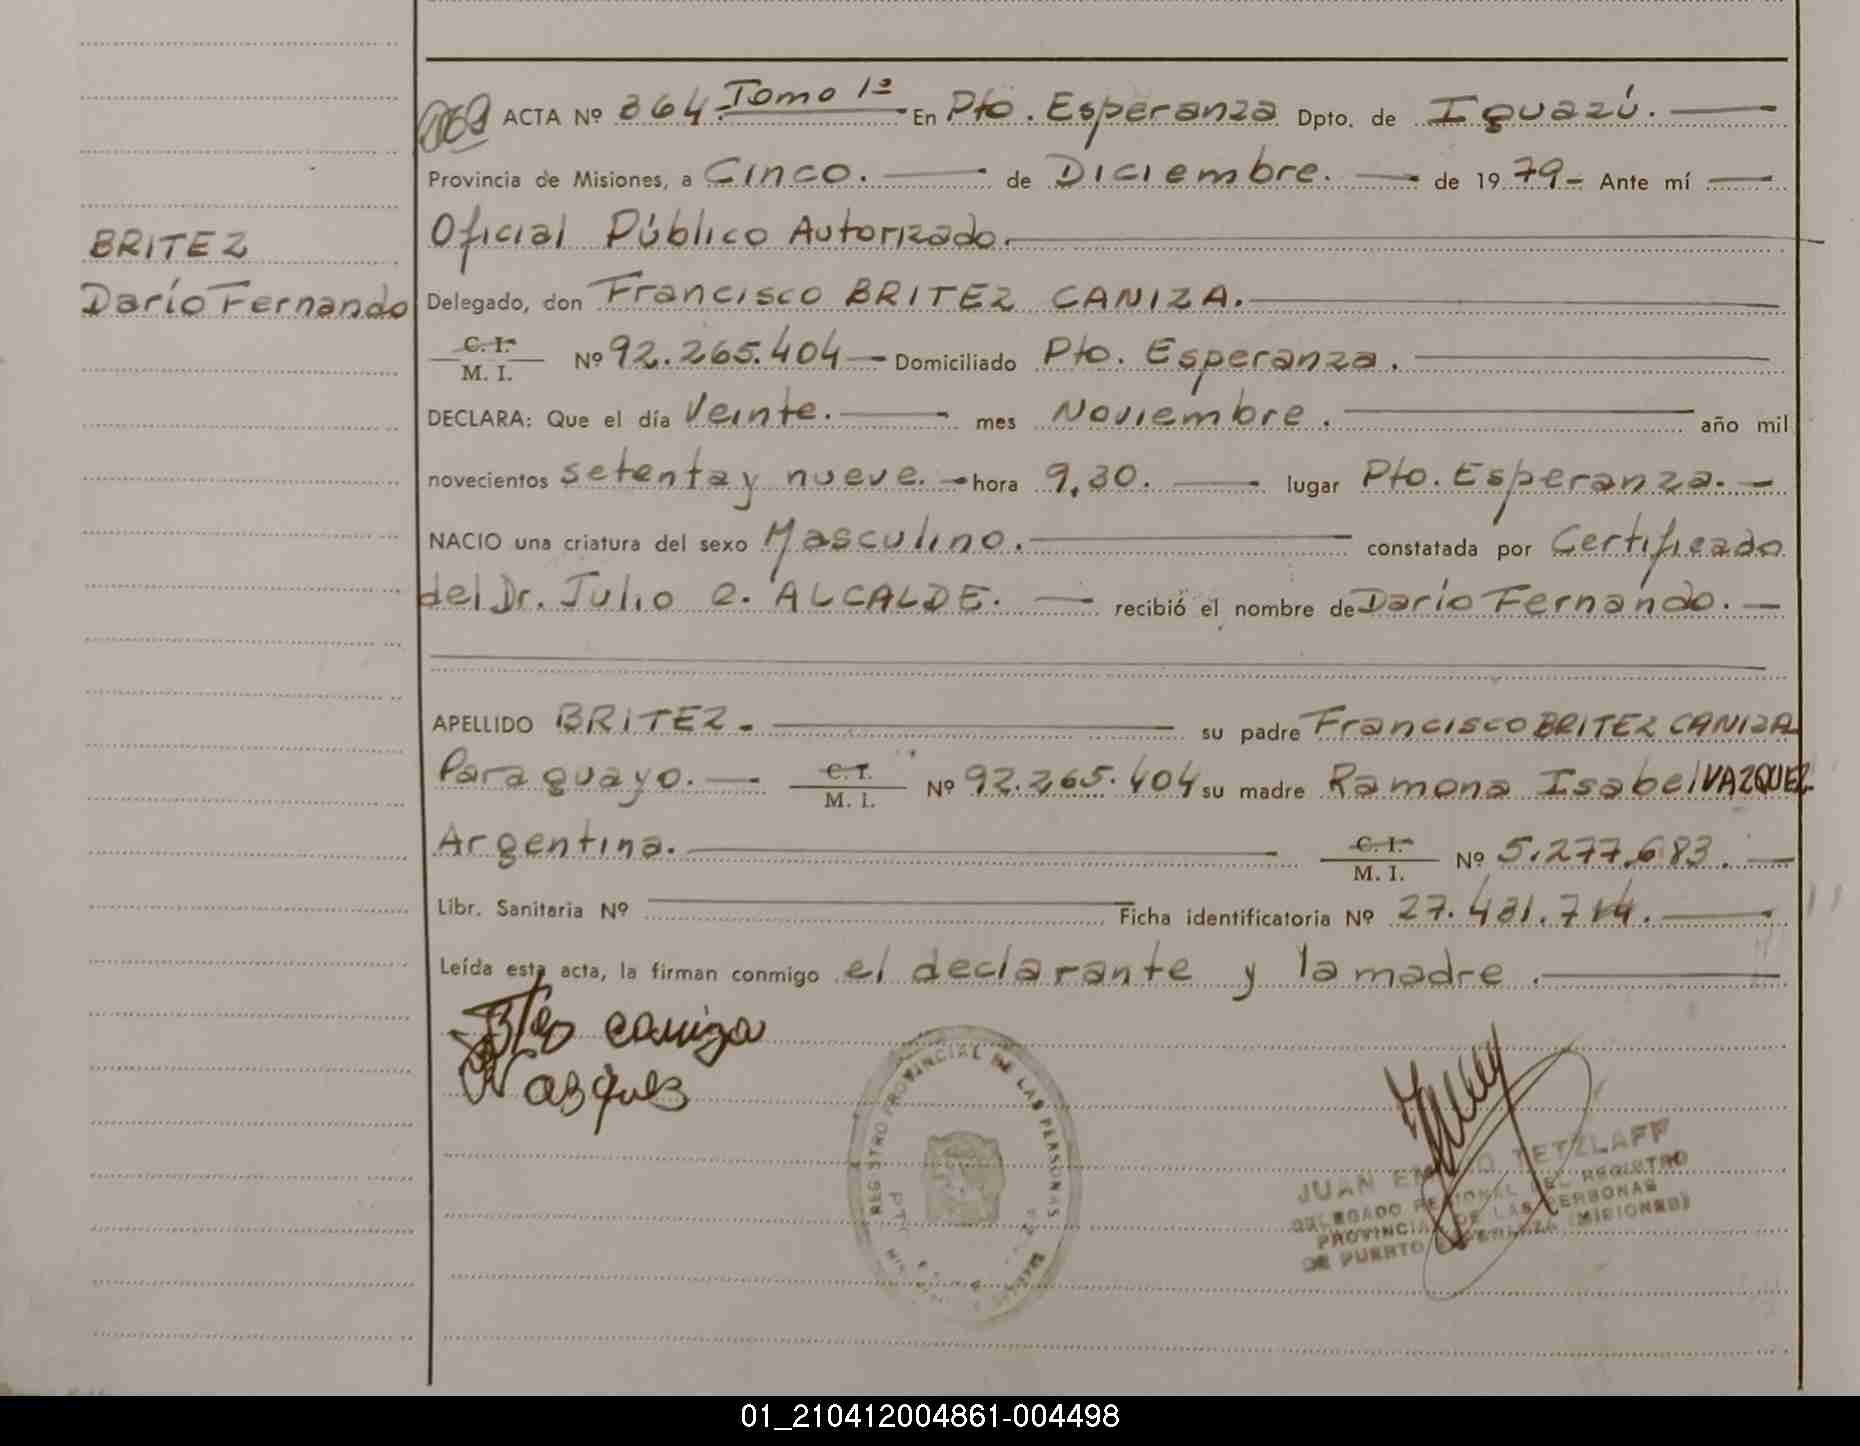 ACTA Nº 364. Tomo 1º En Pto. Esperanza Dpto. de Iguazú.
Provincia de Misiones, a Cinco. de Diciembre. de 1979.- Ante mí
Oficial Público Autorizado.
BRITEZ
Darío Fernando
Delegado, don Francisco BRITEZ CANIZA.
C. I. / M. I. Nº 92.265.404 Domiciliado Pto. Esperanza.
DECLARA: Que el día Veinte. mes Noviembre. año mil
novecientos setenta y nueve. hora 9,30. lugar Pto. Esperanza.
NACIO una criatura del sexo Masculino. constatada por Certificado
del Dr. Julio e. ALCALDE. recibió el nombre de Darío Fernando.
APELLIDO BRITEZ. su padre Francisco BRITEZ CANIZA
Paraguayo. C. I. / M. I. Nº 92.265.404 su madre Ramona Isabel VAZQUEZ
Argentina. C. I. / M. I. Nº 5.277.683.
Libr. Sanitaria Nº Ficha identificatoria Nº 27.481.714.
Leída esta acta, la firman conmigo el declarante y la madre.
caniza
Vasques
REGISTRO PROVINCIAL DE LAS PERSONAS
JUAN TETZLAFF
DELEGADO REGIONAL DEL REGISTRO
PROVINCIAL DE LAS PERSONAS
DE PUERTO ESPERANZA (MISIONES)
01_210412004861-004498